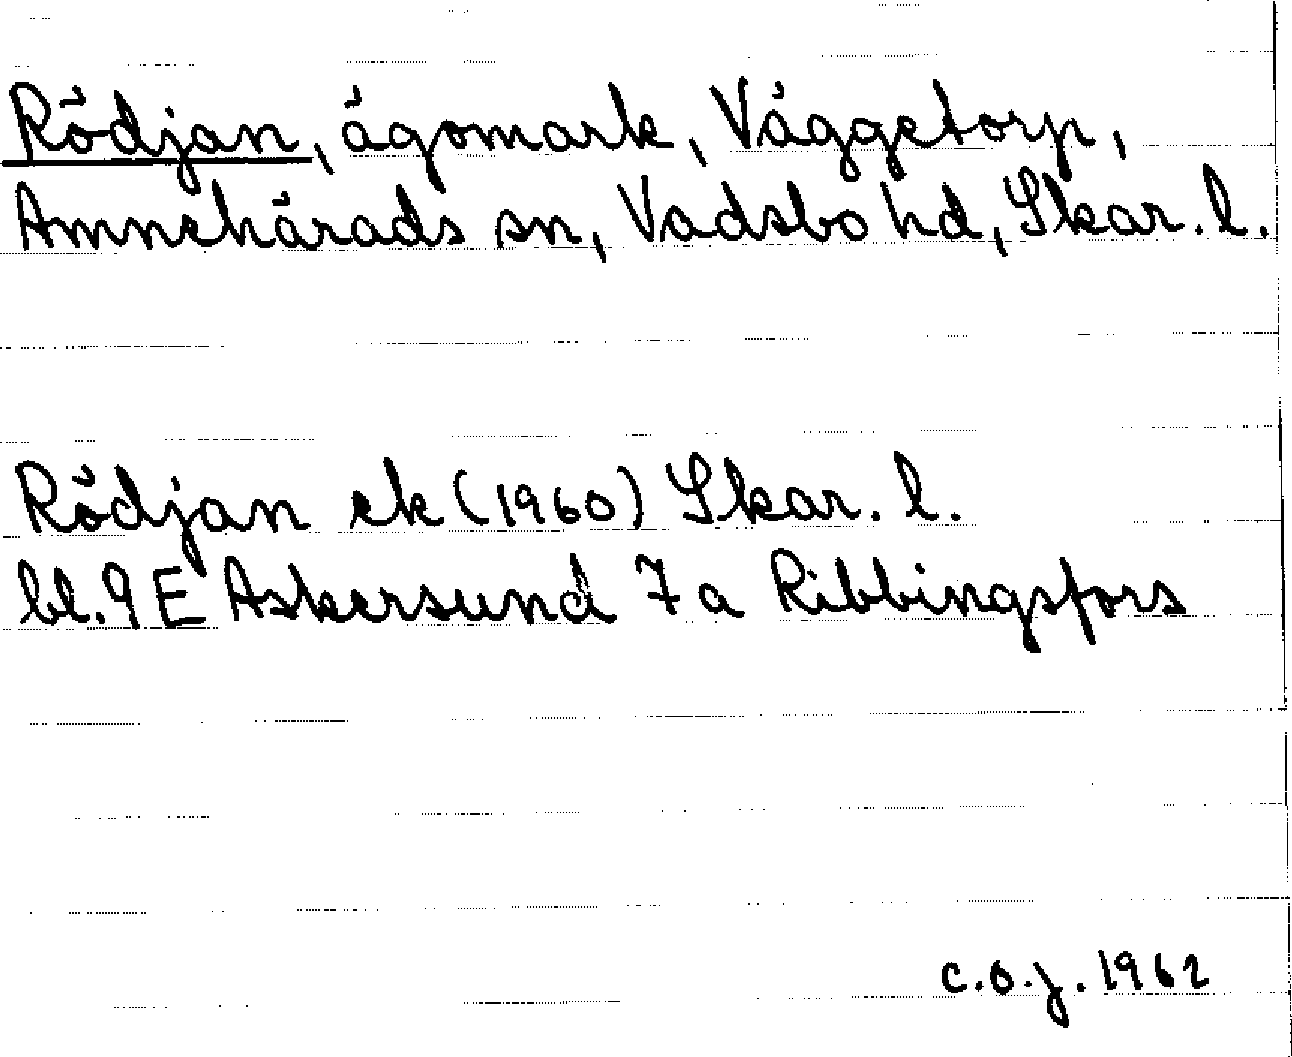 Rödjan, ägomark, Väggetorp,
Amnehärads sn, Vadsbo hd, Skar. l.
Rödjan ek (1960) Skar. l.
bl. 9 E Askersund 7 a Ribbingsfors
c.o.j. 1962